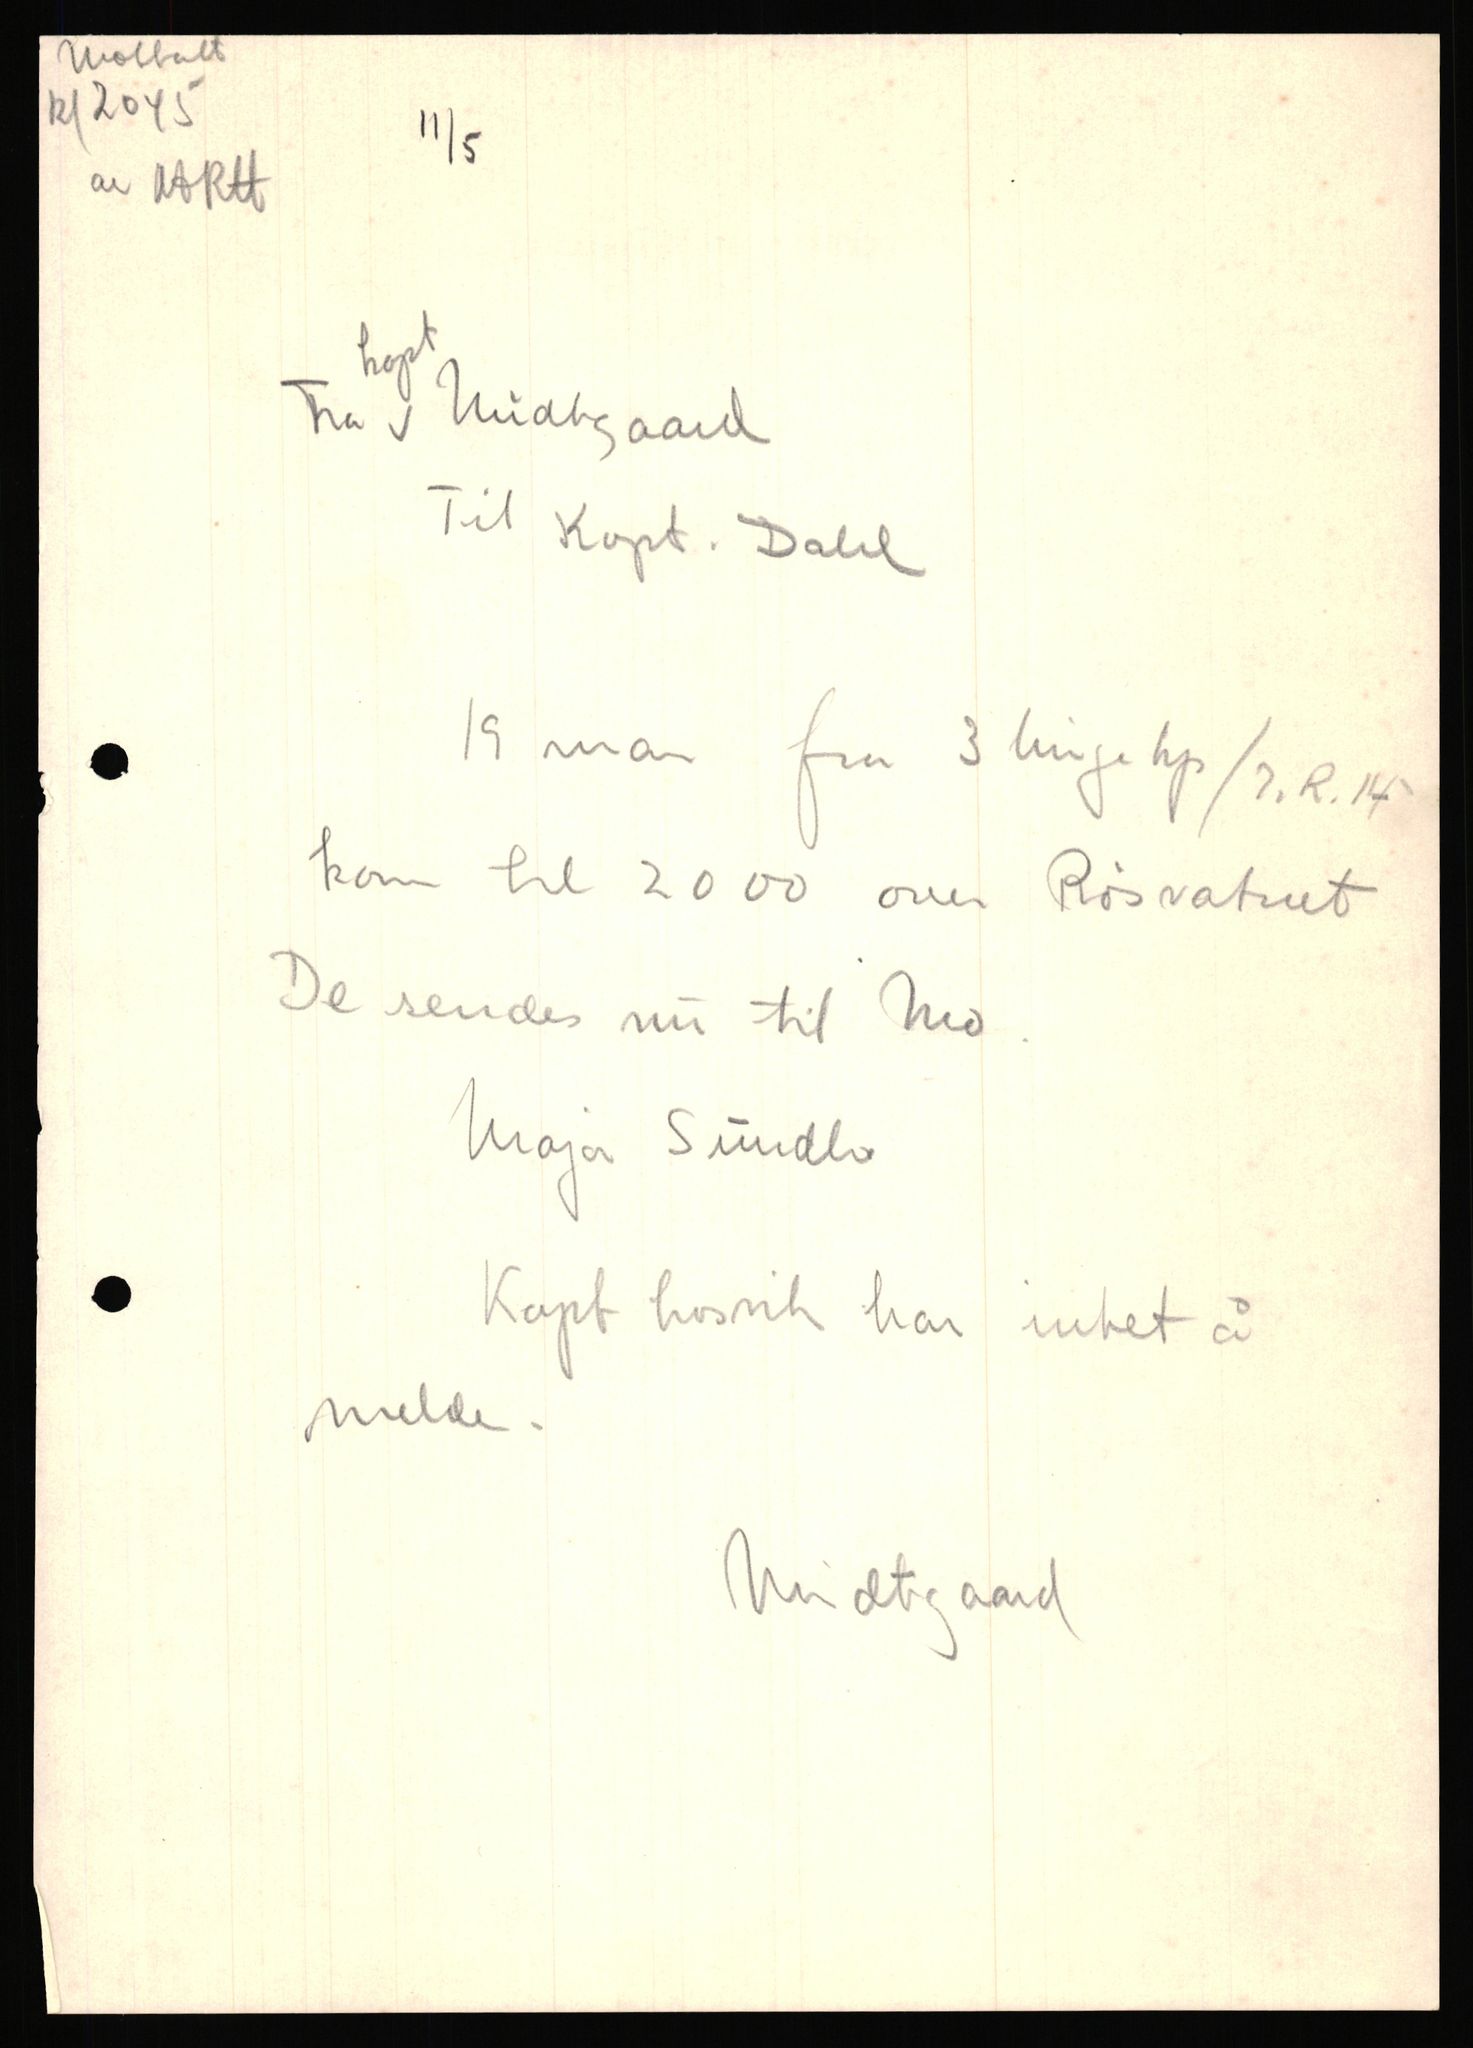 Mottatt
kl 2045
av
11/5
kapt
Fra v Midtgaard
Til Kapt. Dahl
19 man fra 3 linjekp / I.R. 14
kom kl 2000 over Rösvatnet
De sendes nu til Mo.
Major Sundlo
Kapt hosvik har intet å
melde.
Midtgaard